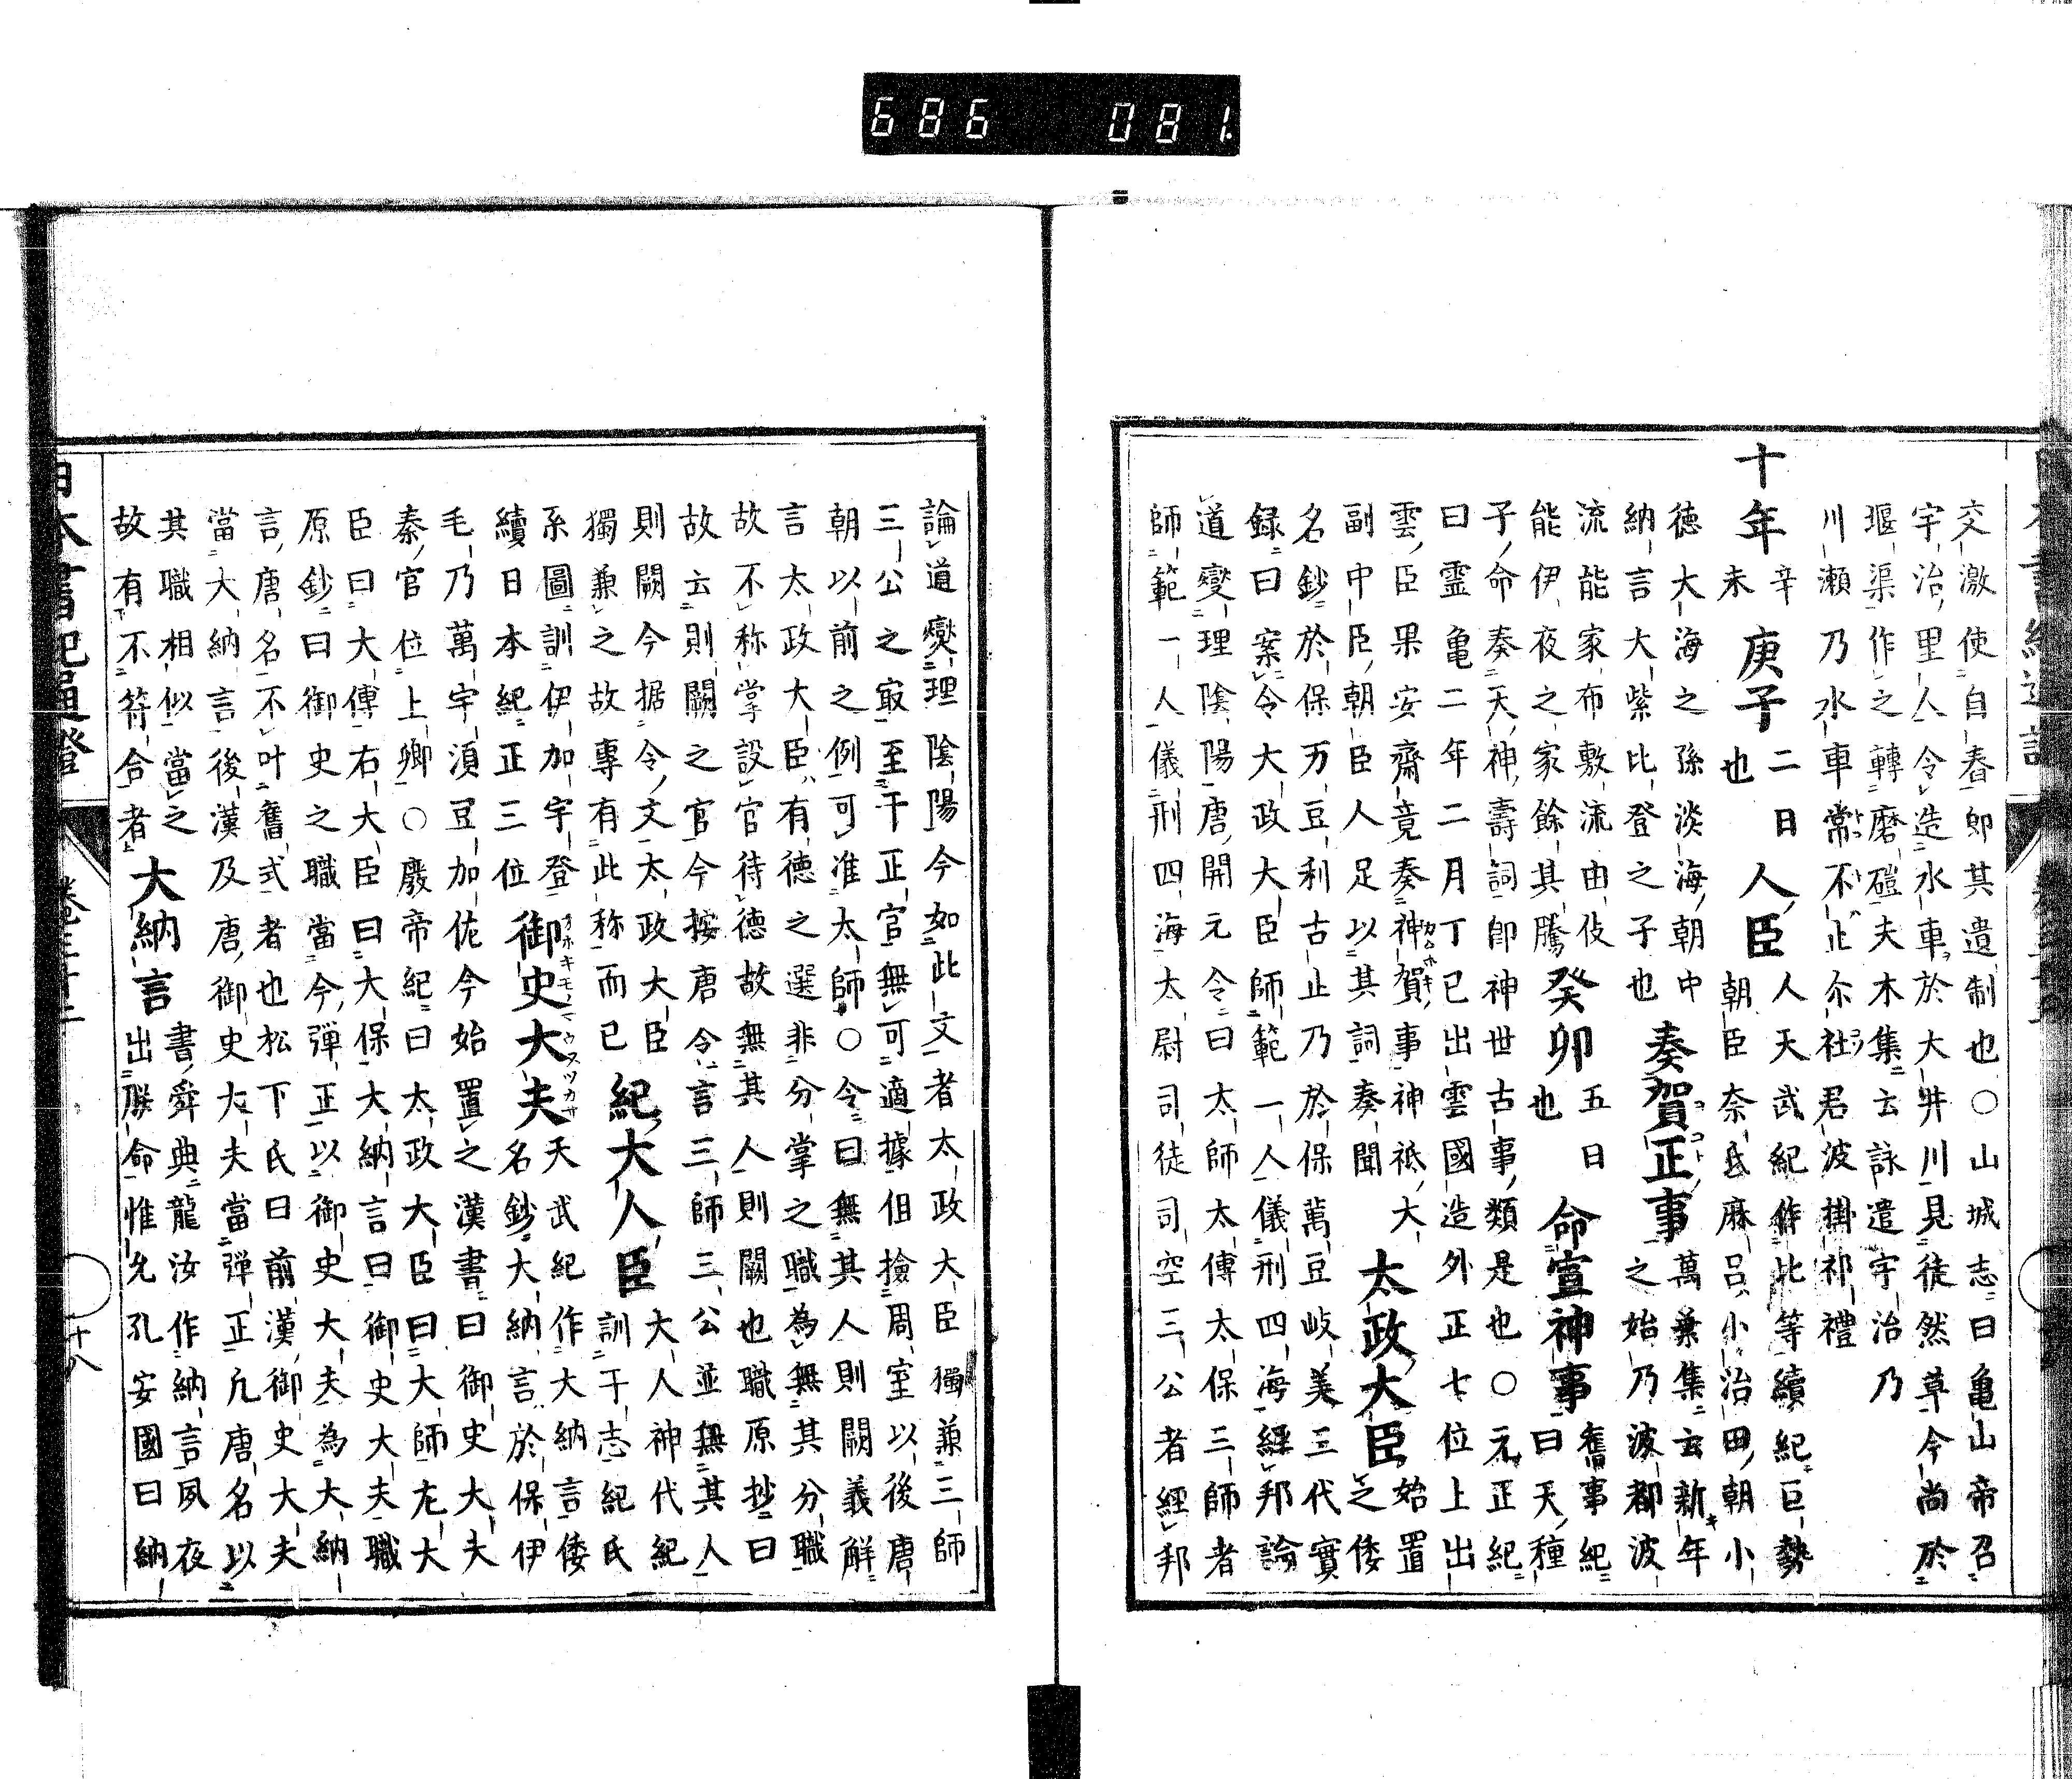 686 081
交激使自舂卽其遺制也○山城志曰亀山帝召
宇治里人令造水車於大井川見徒然草今尚於
堰渠作之轉磨磑夫木集云詠遣宇治乃
川瀬乃水車常不止尒社君波掛祁禮
十年辛未庚子二日也人臣人天武紀作比等續紀巨勢
朝臣奈氐麻呂小治田朝小
徳大海之孫淡海朝中
納言大紫比登之子也奏賀正事萬葉集云新年
之始乃波都波
流能家布敷流由伎
能伊夜之家餘其騰癸卯五日也命宣神事舊事紀
曰天種
子命奏天神壽詞卽神世古事類是也○元正紀
曰霊亀二年二月丁巳出雲國造外正七位上出
雲臣果安齋竟奏神賀事神祗大
副中臣朝臣人足以其詞奏聞太政大臣始置
之倭
名鈔於保万豆利古止乃於保萬豆岐美三代實
録曰案令大政大臣師範一人儀刑四海經邦論
道燮理陰陽唐開元令曰太師太傅太保三師者
師範一人儀刑四海太尉司徒司空三公者經邦
論道燮理陰陽今如此文者太政大臣獨兼三師
三公之㝡至干正官無可適據但撿周室以後唐
朝以前之例可准太師○令曰無其人則闕義解
言太政大臣有德之選非分掌之職為無其分職
故不称掌設官待德故無其人則闕也職原抄曰
故云則闕之官今按唐令言三師三公並無其人
則闕今据令文太政大臣
獨兼之故專有此称而已紀大人臣大人神代紀
訓于志紀氏
系圖訓伊加宇登
續日本紀正三位御史大夫天武紀作大納言倭
名鈔大納言於保伊
毛乃萬宇湏豆加佐今始置之漢書曰御史大夫
秦官位上卿○廢帝紀曰太政大臣曰大師左大
臣曰大傳右大臣曰大保大納言曰御史大夫職
原鈔曰御史之職當今弾正以御史大夫為大納
言唐名不叶舊式者也松下氏曰前漢御史大夫
當大納言後漢及唐御史大夫當弾正凢唐名以
其職相似當之
故有不符合者大納言書舜典龍汝作納言夙夜
出朕命惟允孔安國曰納
日本書紀通證
卷三十三
十八